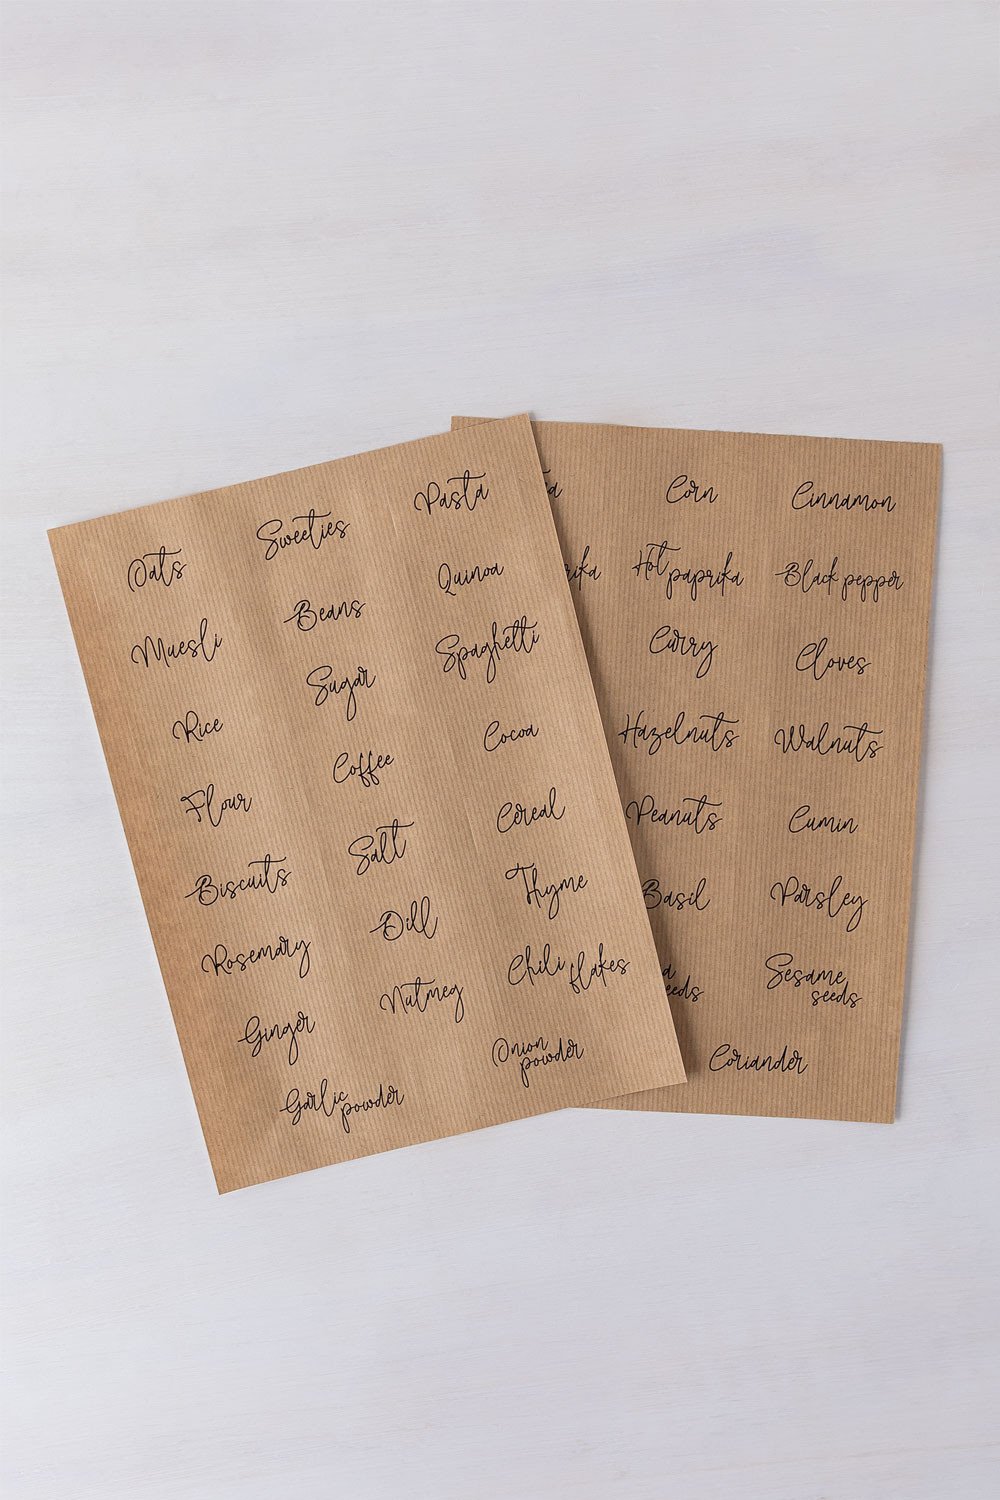 Oats
Sweeties
Pasta
Muesli
Beans
Quinoa
Rice
Sugar
Spaghetti
Flour
Coffee
Cocoa
Biscuits
Salt
Cereal
Rosemary
Dill
Thyme
Ginger
Nutmeg
Chili flakes
Garlic
powder
Onion
powder
Corn
Cinnamon
Hot paprika
Black pepper
Curry
Cloves
Hazelnuts
Walnuts
Peanuts
Cumin
Basil
Parsley
Sesame
seeds
Coriander